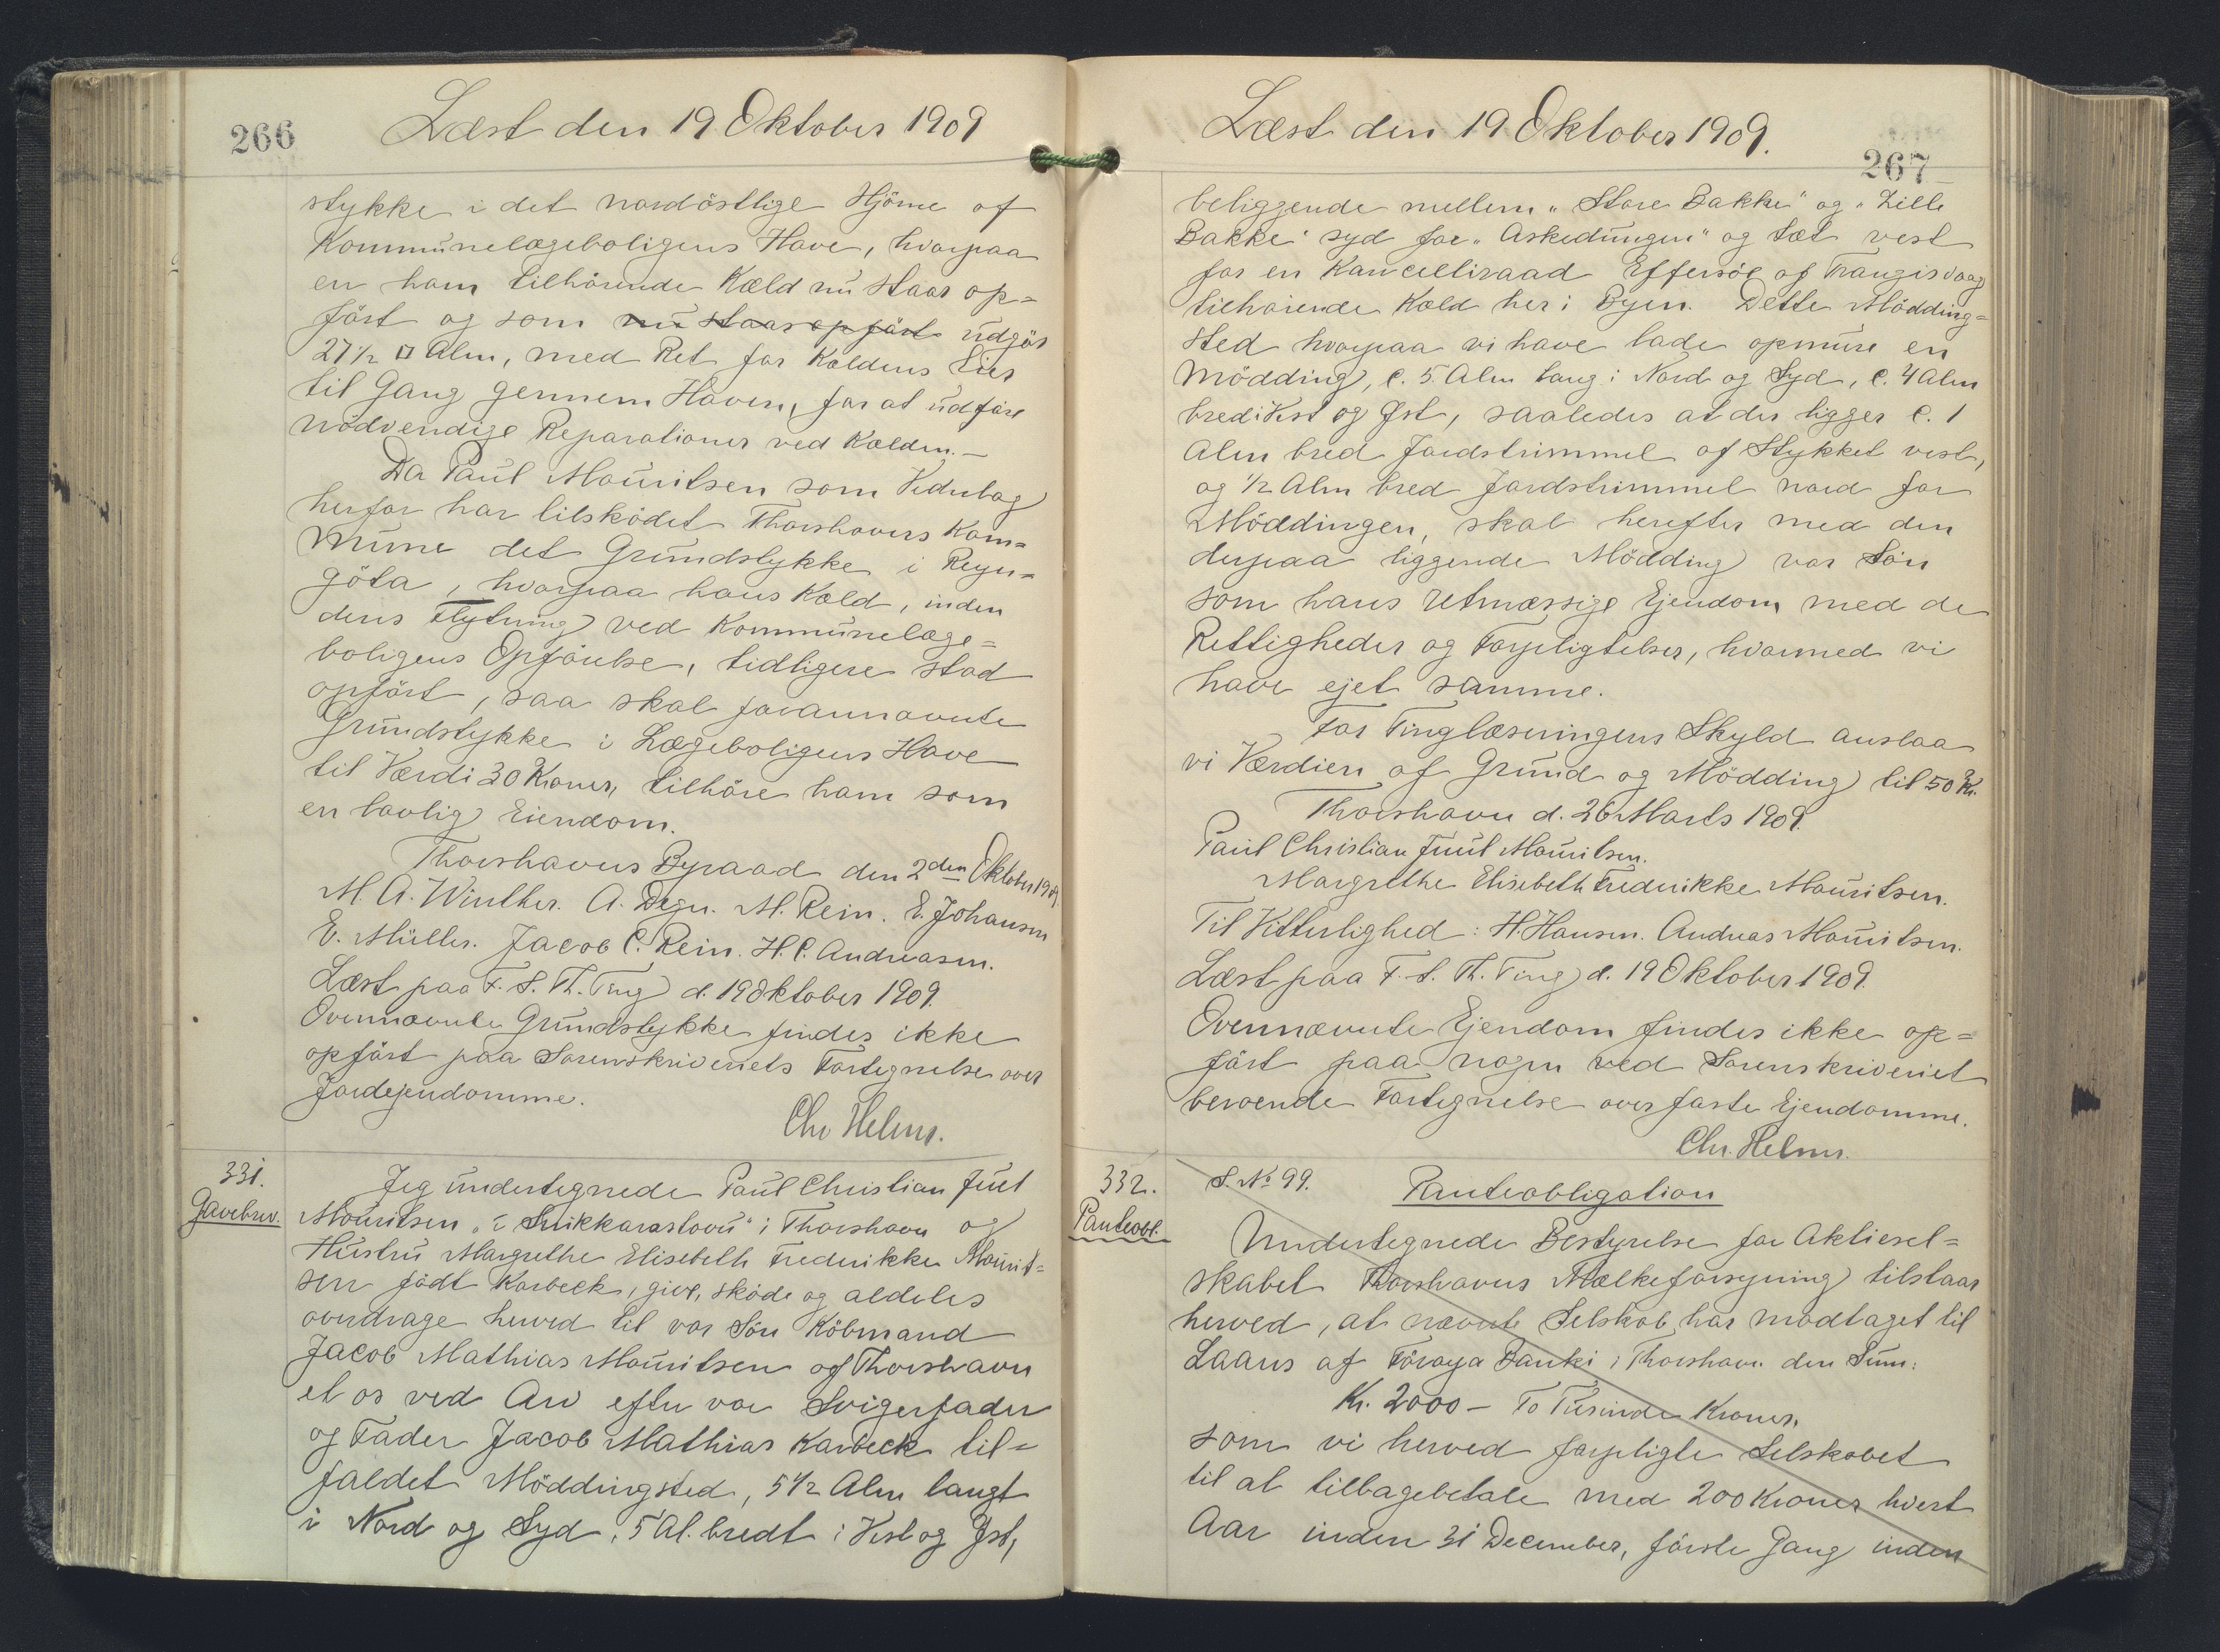 266
Læst den 19. Oktober 1909
stykke i det nordöstlige Hjörne af
Kommunelægeboligens Have, hvorpaa
en ham tilhörende Kæld nu staar op=
fört og som nu staar opfört udgör
27 1/2 □ Alm, med Ret for Kældens Eier
til Gang gennem Haven, for at udföre
nödvendige Reparationer ved Kælden.—
Da Paul Mouritsen som Vederlag
herfor har tilsködet Thorshavns Kom=
mune det Grundstykke i Reyn=
göta, hvorpaa hans Kæld, inden
dens Flytning ved Kommunelæge=
boligens Opförelse, tidligere stod
opfört, saa skal forannævnte
Grundstykke i Lægeboligens Have
til Værdi 30 Kroner, tilhöre ham som
en lovlig Eiendom.
Thorshavns Byraad den 2den Oktober 1909.
M. A. Winther. A. Degn. M. Rein. E. Johansen
E. Müller. Jacob C. Rein. H. C. Andreasen.
Læst paa F. S. Th. Ting d. 19 Oktober 1909.
Ovennævnte Grundstykke findes ikke
opfört paa Sorenskriveriets Fortegnelse over
Jordejendomme.
Chr Helms.
331.
Gavebrev.
Jeg undertegnede Paul Christian Juul
Mouritsen "i Snikkarastovu" i Thorshavn og
Hustru Margrethe Elisebeth Frederikke Mourit=
sen födt Karbeck, give, sköde og aldeles
overdrage herved til vor Sön Köbmand
Jacob Mathias Mouritsen af Thorshavn
et os ved Arv efter vor Svigerfader
og Fader Jacob Mathias Karbeck til=
faldet Möddingsted, 5 1/2 Alen langt
i Nord og Syd, 5 Al. bredt i Vest og Øst,
Læst den 19 Oktober 1909.
267
beliggende mellem "Store Bakke" og "Lille
Bakke" syd for "Askedungen" og tæt vest
for en Kancelliraad Effersöe af Trangisvaag
tilhörende Kæld her i Byen. Dette Mödding=
sted hvorpaa vi have lade opmure en
Mödding, c. 5 Alm lang i Nord og Syd, c. 4 Alm
bred i Vest og Øst, saaledes at der ligger c. 1
Alm bred Jordstrimmel af Stykket vest,
og 1/2 Alm bred Jordstrimmel nord for
Möddingen, skal herefter med den
derpaa liggende Mödding vor Sön
som hans retmæssige Ejendom med de
Rettigheder og Forpligtelser, hvormed vi
have ejet samme.
For Tinglæsningens Skyld anslaa
vi Værdien af Grund og Mödding til 50 Kr.
Thorshavn d. 26 Marts 1909.
Paul Christian Juul Mouritsen.
Margrethe Elisebeth Frederikke Mouritsen.
Til Vitterlighed: H. Hansen. Andreas Mouritsen.
Læst paa F. S. Th. Ting d. 19 Oktober 1909.
Ovennævnte Ejendom findes ikke op=
fört paa nogen ved Sorenskriveriet
beroende Fortegnelse over faste Ejendomme.
Chr. Helms.
332.
Panteobl.
S. No 99.
Panteobligation
Undertegnede Bestyrelse for Aktiesel=
skabet Thorshavns Mælkeforsyning tilstaar
herved, at nævnte Selskab har modtaget til
Laans af Föroya Banki i Thorshavn den Sum:
Kr. 2000 — To Tusinde Kroner.
som vi herved forpligte Selskabet
til at tilbagebetale med 200 Kroner hvert
Aar inden 31 December, förste Gang inden